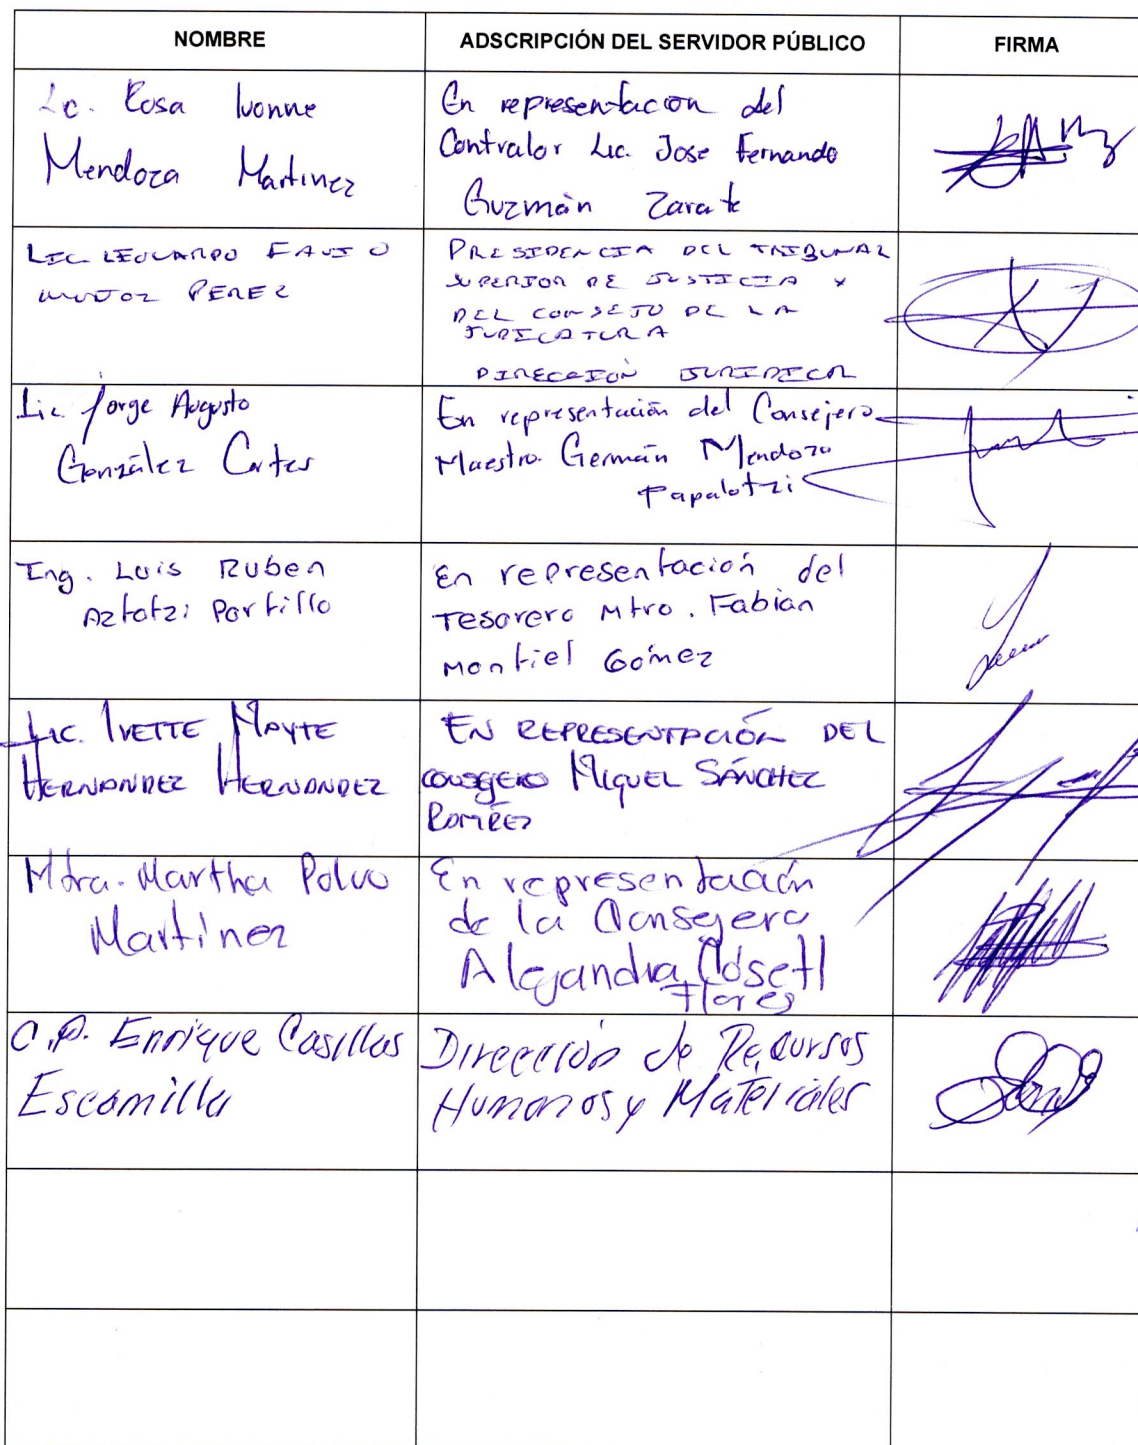 NOMBRE
ADSCRIPCIÓN DEL SERVIDOR PÚBLICO
FIRMA
Lc. Rosa Ivonne
Mendoza Martinez
En representacion del
Contralor Lic. Jose Fernando
Guzmán Zarate
LIC LEONARDO FAVIO
MUÑOZ PEREZ
PRESIDENCIA DEL TRIBUNAL
SUPERIOR DE JUSTICIA Y
DEL CONSEJO DE LA
JUDICATURA
DIRECCION JURIDICA
Lic. Jorge Augusto
González Cortes
En representación del Consejero
Maestro. Germán Mendoza
Papalotzi
Ing. Luis Ruben
Aztatzi Portillo
En representación del
Tesorero Mtro. Fabian
Montiel Gómez
LIC. IVETTE MAYTE
HERNANDEZ HERNANDEZ
EN REPRESENTACIÓN DEL
CONSEJERO MIGUEL SÁNCHEZ
ROMÍREZ
Mtra. Martha Polvo
Martinez
En representación
de la Consejera
Alejandra Cósetl
Flores
C.P. Enrique Casillas
Escamilla
Dirección de Recursos
Humanos y Materiales